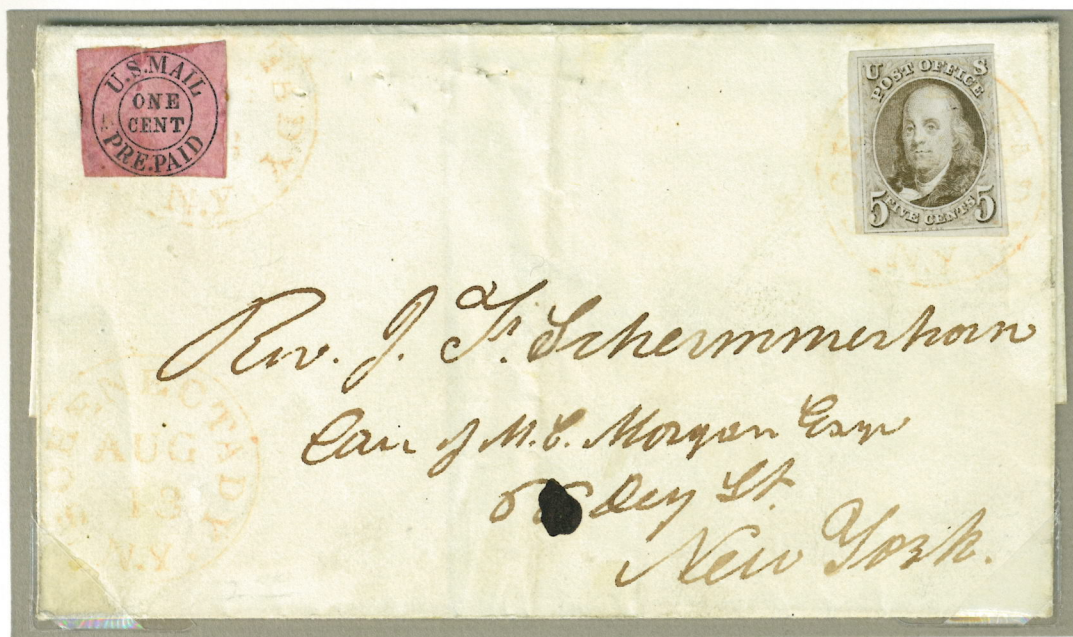 U.S.MAIL
ONE
CENT
PRE.PAID
U S
POST OFFICE
5 FIVE CENTS 5
N.Y.
Rev. J. F. Schermmerhorn
Care of M. C. Morgan Esqr
Dey St.
New York.
SCHENECTADY
AUG
N.Y.